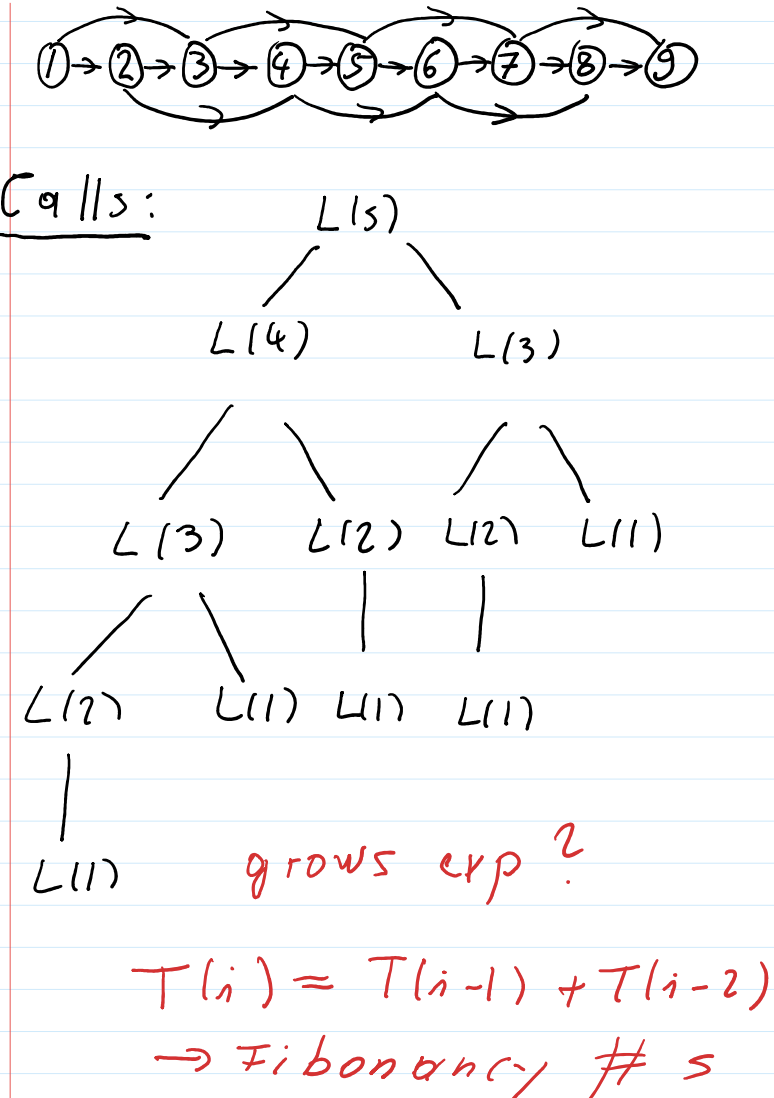 1 → 2 → 3 → 4 → 5 → 6 → 7 → 8 → 9
Calls:
L(5)
L(4) L(3)
L(3) L(2) L(2) L(1)
L(2) L(1) L(1) L(1)
L(1)
grows exp?
T(i) = T(i-1) + T(i-2)
→ Fibonancy # s